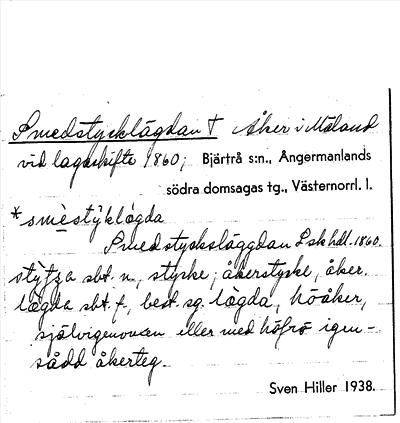 Smedstycklägdan † Åker i Måland
vid lagaskifte 1860; Bjärtrå s:n., Ångermanlands
södra domsagas tg., Västernorrl. l.
*smèstýklògda
Smedstycksläggdan Lskhdl. 1860.
sbt. n., stycke; åkerstycke, åker.
lògda sbt. f., best. sg. lògda, höåker,
självigenvuxen eller med höfrö igen-
sådd åkerteg.
Sven Hiller 1938.